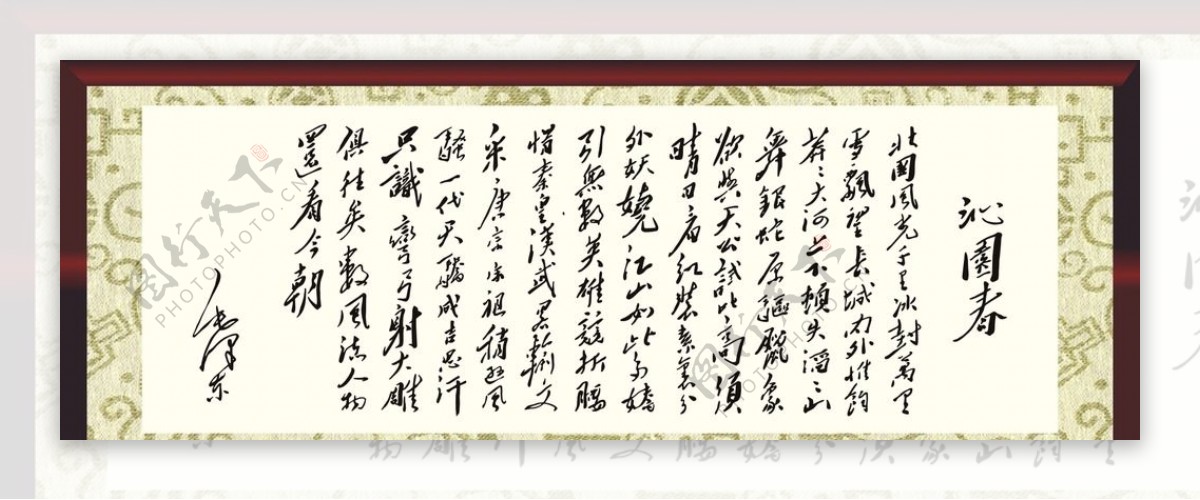 沁園春
北國風光千里冰封萬里
雪飄望長城內外惟餘
莽々大河上下頓失滔々山
舞銀蛇原驅臘象
欲與天公試比高須
晴日看紅裝素裹分
外妖嬈江山如此多嬌
引無數英雄競折腰
惜秦皇漢武略輸文
采唐宗宋祖稍遜風
騷一代天驕成吉思汗
只識彎弓射大雕
俱往矣數風流人物
還看今朝
毛澤東
图行天下
PHOTOPHOTO.CN
图行天下
PHOTOPHOTO.CN